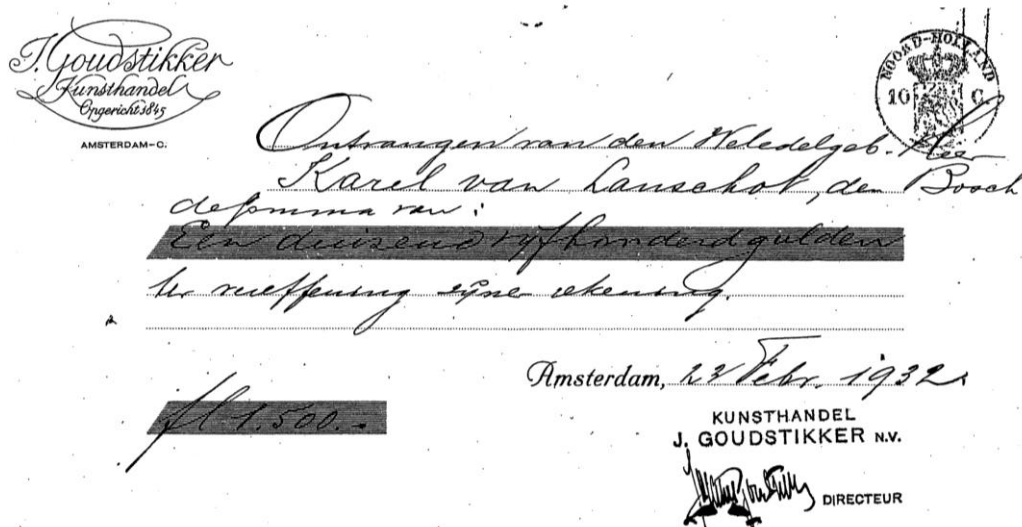 J. Goudstikker
Kunsthandel
Opgericht 1845
AMSTERDAM-C.
NOORD-HOLLAND
10 C.
Ontvangen van den Weledelgeb. Heer
Karel van Lanschot, den Bosch
de somma van:
Een duizend vyfhonderd gulden
ter vereffening zijner rekening.
Amsterdam, 22 Febr. 1932
fl 1.500.-
KUNSTHANDEL
J. GOUDSTIKKER N.V.
DIRECTEUR